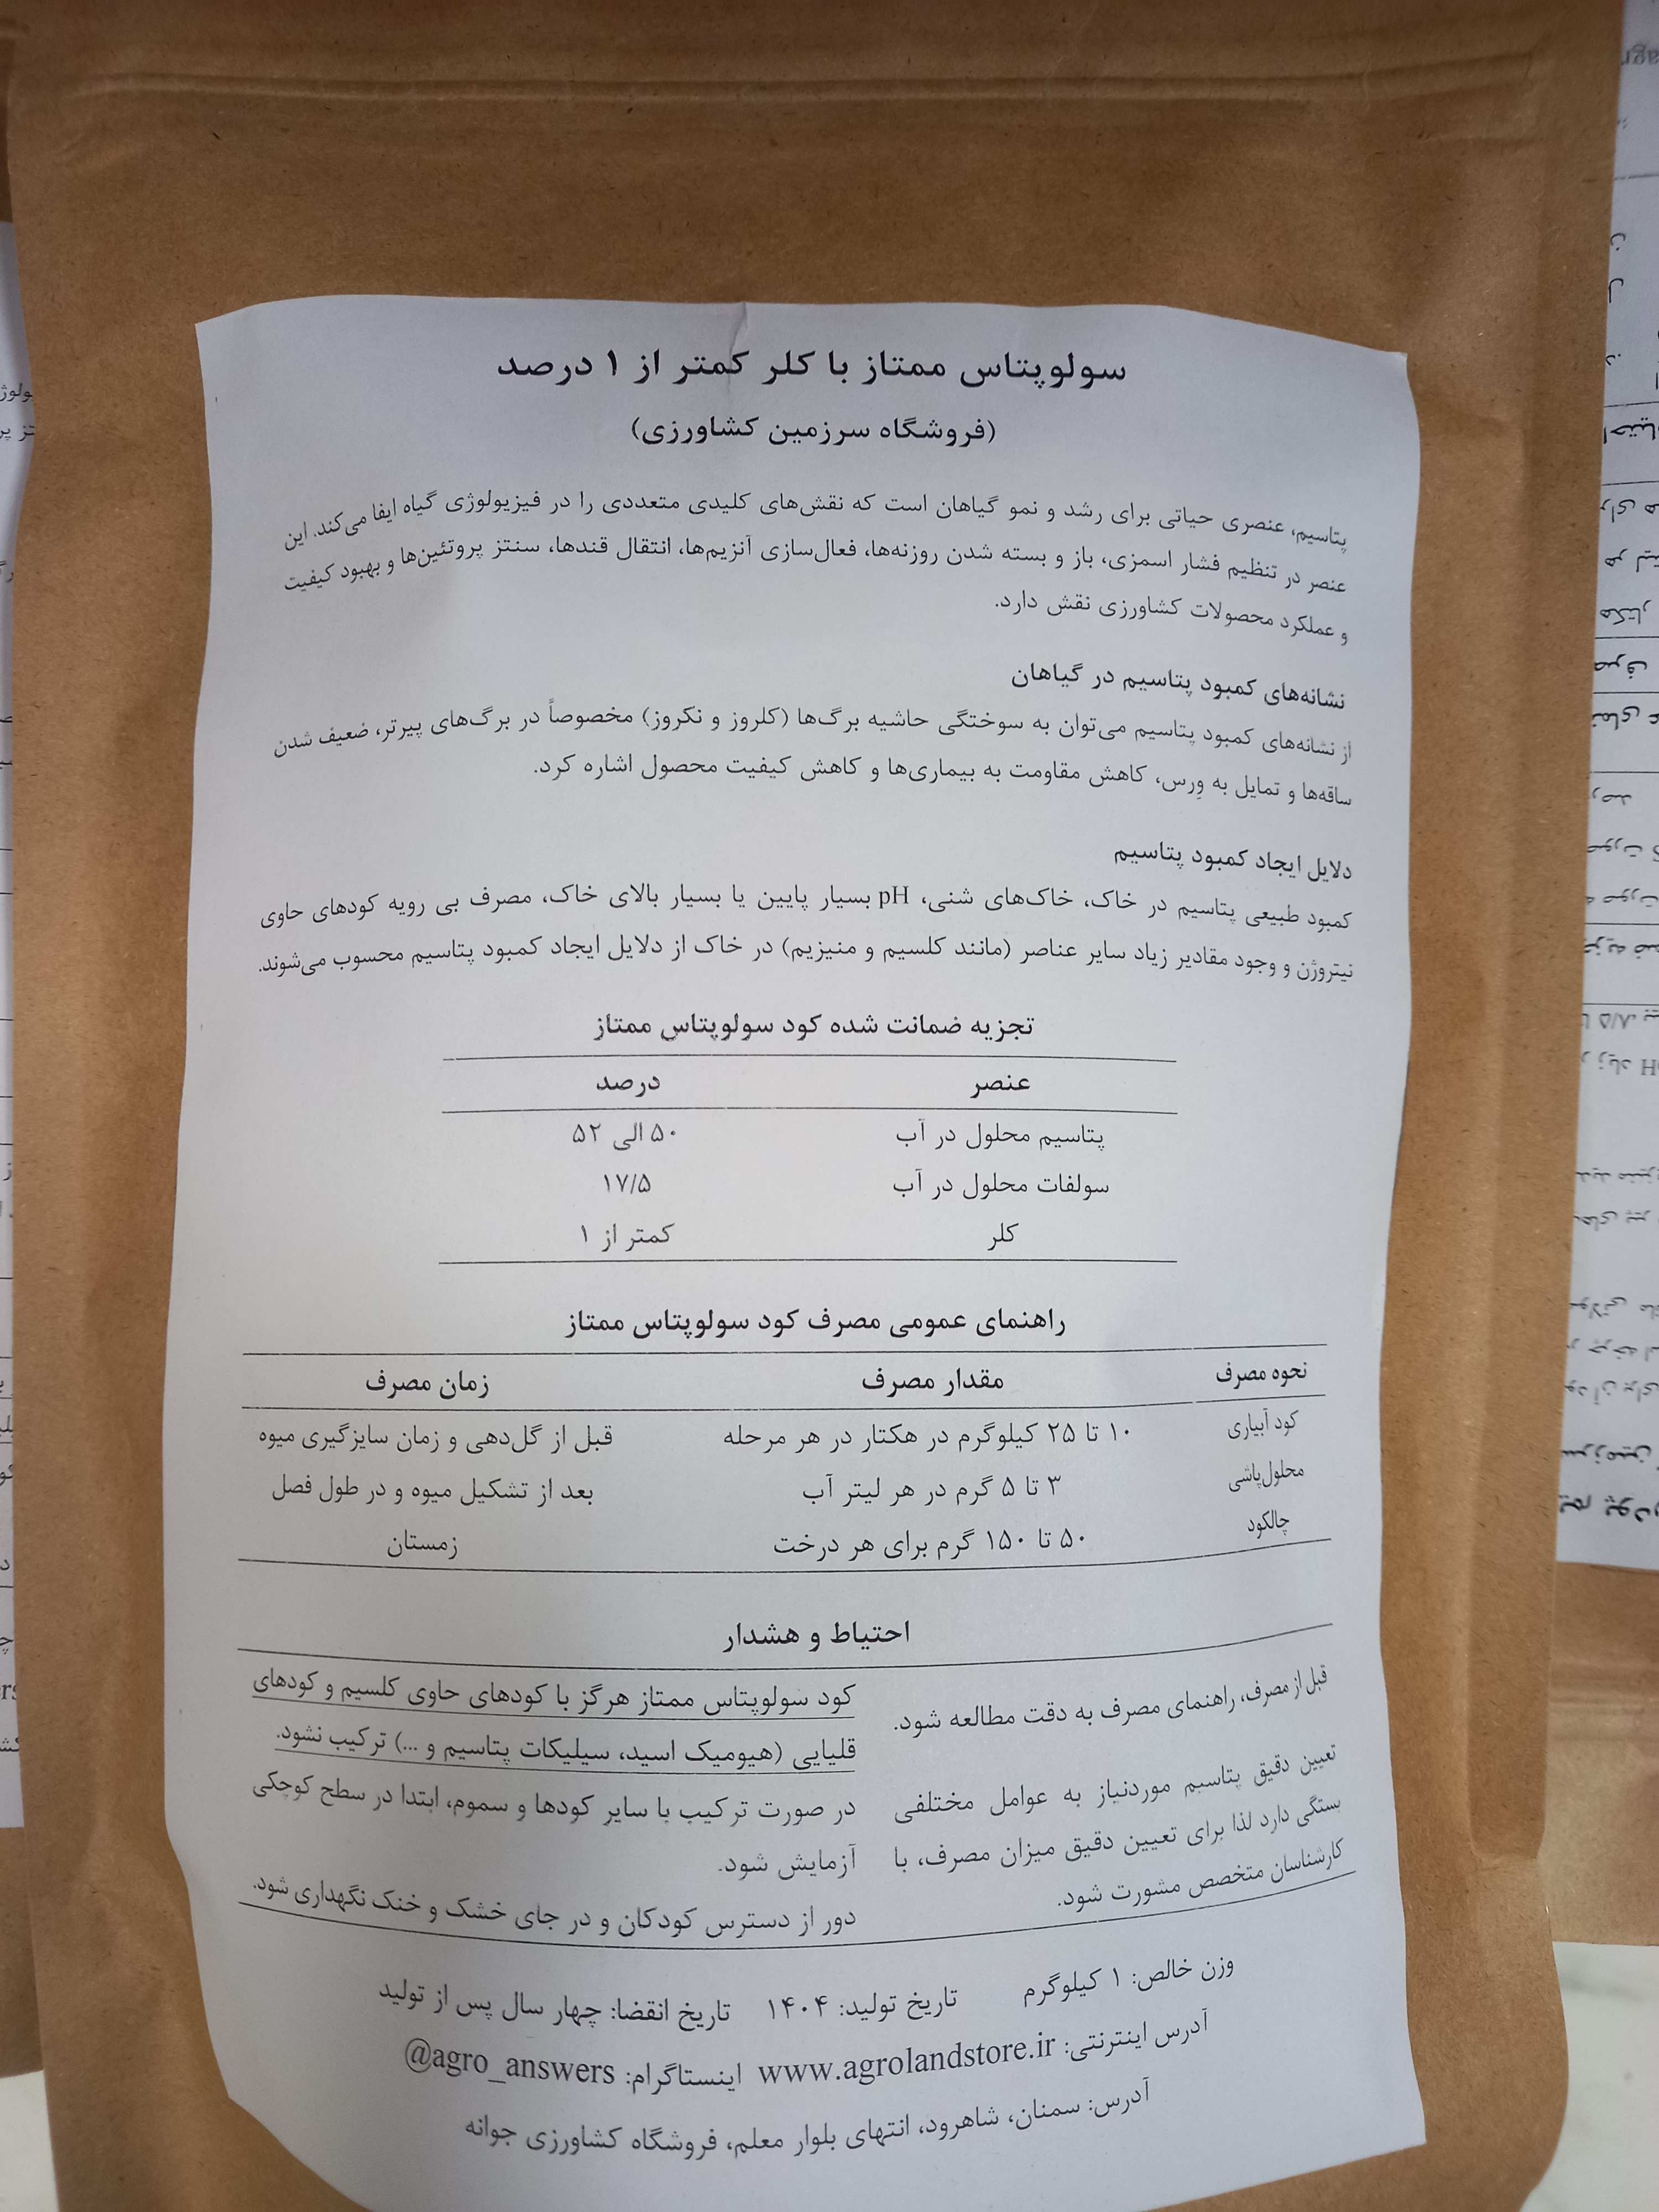 سولوپتاس ممتاز با کلر کمتر از ۱ درصد
(فروشگاه سرزمین کشاورزی)
پتاسیم، عنصری حیاتی برای رشد و نمو گیاهان است که نقش‌های کلیدی متعددی را در فیزیولوژی گیاه ایفا می‌کند. این
عنصر در تنظیم فشار اسمزی، باز و بسته شدن روزنه‌ها، فعال‌سازی آنزیم‌ها، انتقال قندها، سنتز پروتئین‌ها و بهبود کیفیت
و عملکرد محصولات کشاورزی نقش دارد.
نشانه‌های کمبود پتاسیم در گیاهان
از نشانه‌های کمبود پتاسیم می‌توان به سوختگی حاشیه برگ‌ها (کلروز و نکروز) مخصوصاً در برگ‌های پیرتر، ضعیف شدن
ساقه‌ها و تمایل به وِرس، کاهش مقاومت به بیماری‌ها و کاهش کیفیت محصول اشاره کرد.
دلایل ایجاد کمبود پتاسیم
کمبود طبیعی پتاسیم در خاک، خاک‌های شنی، pH بسیار پایین یا بسیار بالای خاک، مصرف بی رویه کودهای حاوی
نیتروژن و وجود مقادیر زیاد سایر عناصر (مانند کلسیم و منیزیم) در خاک از دلایل ایجاد کمبود پتاسیم محسوب می‌شوند.
تجزیه ضمانت شده کود سولوپتاس ممتاز
عنصر درصد
پتاسیم محلول در آب ۵۰ الی ۵۲
سولفات محلول در آب ۱۷/۵
کلر کمتر از ۱
راهنمای عمومی مصرف کود سولوپتاس ممتاز
نحوه مصرف مقدار مصرف زمان مصرف
کود آبیاری ۱۰ تا ۲۵ کیلوگرم در هکتار در هر مرحله قبل از گل‌دهی و زمان سایزگیری میوه
محلول‌پاشی ۳ تا ۵ گرم در هر لیتر آب بعد از تشکیل میوه و در طول فصل
چالکود ۵۰ تا ۱۵۰ گرم برای هر درخت زمستان
احتیاط و هشدار
قبل از مصرف، راهنمای مصرف به دقت مطالعه شود.
تعیین دقیق پتاسیم موردنیاز به عوامل مختلفی
بستگی دارد لذا برای تعیین دقیق میزان مصرف، با
کارشناسان متخصص مشورت شود.
کود سولوپتاس ممتاز هرگز با کودهای حاوی کلسیم و کودهای
قلیایی (هیومیک اسید، سیلیکات پتاسیم و ...) ترکیب نشود.
در صورت ترکیب با سایر کودها و سموم، ابتدا در سطح کوچکی
آزمایش شود.
دور از دسترس کودکان و در جای خشک و خنک نگهداری شود.
وزن خالص: ۱ کیلوگرم تاریخ تولید: ۱۴۰۴ تاریخ انقضا: چهار سال پس از تولید
آدرس اینترنتی: www.agrolandstore.ir اینستاگرام: @agro_answers
آدرس: سمنان، شاهرود، انتهای بلوار معلم، فروشگاه کشاورزی جوانه